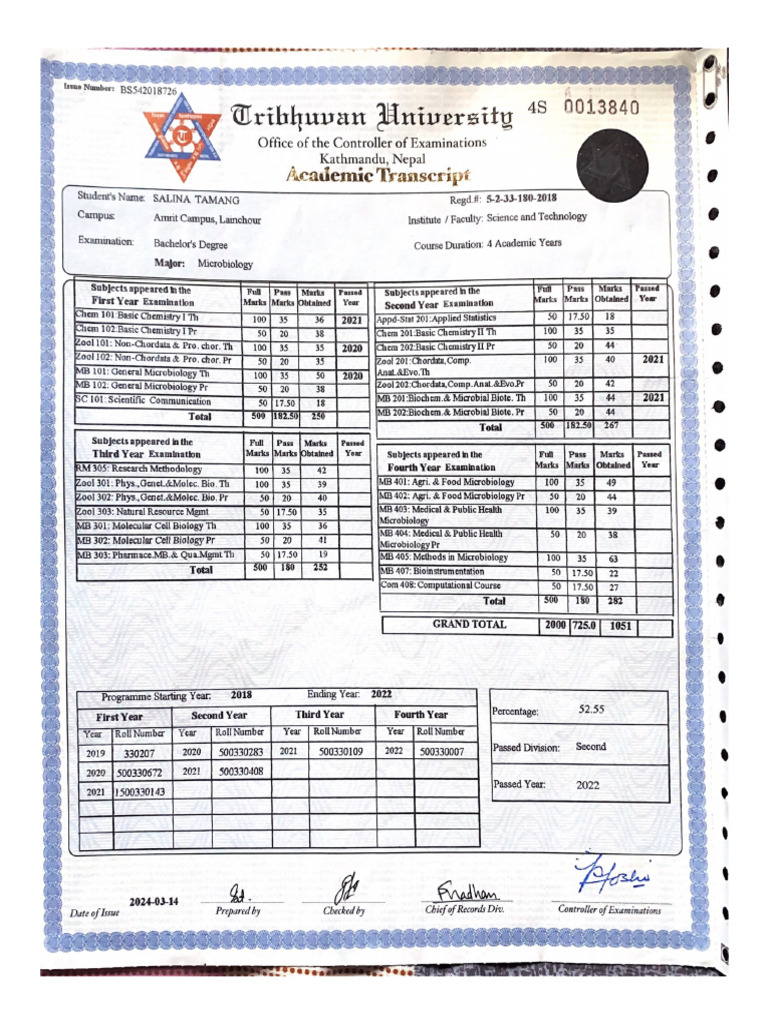 Issue Number: BS542018726
Tribhuvan University
4S 0013840
Office of the Controller of Examinations
Kathmandu, Nepal
Academic Transcript
Student's Name: SALINA TAMANG Regd.#: 5-2-33-180-2018
Campus: Amrit Campus, Lainchour Institute / Faculty: Science and Technology
Examination: Bachelor's Degree Course Duration: 4 Academic Years
Major: Microbiology
Subjects appeared in the First Year Examination Full Marks Pass Marks Marks Obtained Passed Year
Chem 101:Basic Chemistry I Th 100 35 36 2021
Chem 102:Basic Chemistry I Pr 50 20 38
Zool 101: Non-Chordata & Pro. chor. Th 100 35 35 2020
Zool 102: Non-Chordata & Pro. chor. Pr 50 20 35
MB 101: General Microbiology Th 100 35 50 2020
MB 102: General Microbiology Pr 50 20 38
SC 101: Scientific Communication 50 17.50 18
Total 500 182.50 250
Subjects appeared in the Second Year Examination Full Marks Pass Marks Marks Obtained Passed Year
Appd-Stat 201:Applied Statistics 50 17.50 18
Chem 201:Basic Chemistry II Th 100 35 35
Chem 202:Basic Chemistry II Pr 50 20 44
Zool 201:Chordata,Comp. 100 35 40 2021
Anat.&Evo.Th
Zool 202:Chordata,Comp.Anat.&Evo.Pr 50 20 42
MB 201:Biochem.& Microbial Biote. Th 100 35 44 2021
MB 202:Biochem.& Microbial Biote. Pr 50 20 44
Total 500 182.50 267
Subjects appeared in the Third Year Examination Full Marks Pass Marks Marks Obtained Passed Year
RM 305: Research Methodology 100 35 42
Zool 301: Phys.,Genet.&Molec. Bio. Th 100 35 39
Zool 302: Phys.,Genet.&Molec. Bio. Pr 50 20 40
Zool 303: Natural Resource Mgmt 100 35 35
MB 301: Molecular Cell Biology Th 100 35 36
MB 302: Molecular Cell Biology Pr 50 20 41
MB 303: Pharmace.MB.& Qua.Mgmt Th 50 17.50 19
Total 500 180 252
Subjects appeared in the Fourth Year Examination Full Marks Pass Marks Marks Obtained Passed Year
MB 401: Agri. & Food Microbiology 100 35 49
MB 402: Agri. & Food Microbiology Pr 50 20 44
MB 403: Medical & Public Health 100 35 39
Microbiology
MB 404: Medical & Public Health 50 20 38
Microbiology Pr
MB 405: Methods in Microbiology 100 35 63
MB 407: Bioinstrumentation 50 17.50 22
Com 408: Computational Course 50 17.50 27
Total 500 180 282
GRAND TOTAL 2000 725.0 1051
Programme Starting Year: 2018 Ending Year: 2022
First Year Second Year Third Year Fourth Year
Year Roll Number Year Roll Number Year Roll Number Year Roll Number
2019 330207 2020 500330283 2021 500330109 2022 500330007
2020 500330672 2021 500330408
2021 1500330143
Percentage: 52.55
Passed Division: Second
Passed Year: 2022
2024-03-14
Date of Issue Prepared by Checked by Chief of Records Div. Controller of Examinations